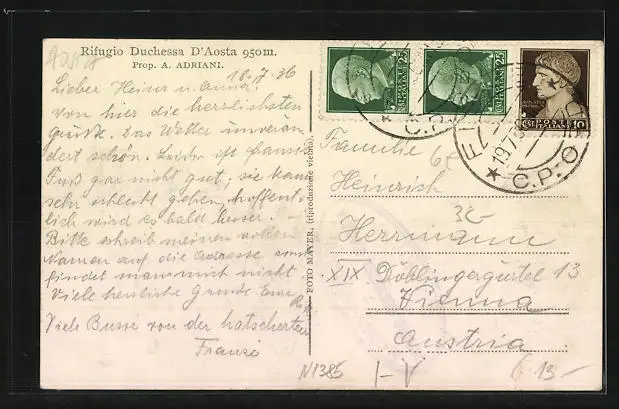 Aosta
Rifugio Duchessa D'Aosta 950m.
Prop. A. ADRIANI.
18.7.36
Lieber Heinz u. Anna!
Von hier die herzlichsten
Grüße. Das Wetter unverän-
dert schön. Leider ist Fransis
Fuß gar nicht gut; sie kann
sehr schlecht gehen, hoffent-
lich wird es bald besser.
Bitte schreib meinen vollen
Namen auf die Adresse sonst
findet man mich nicht.
Viele herzliche Grüße Eure
Viele Bussi von der hatscherten
Franzi
FOTO MAYER, (riproduzione vietata).
Familie
Heinrich
Herrmann
XIX. Döblingergürtel 13
Vienna
Austria
POSTE ITALIANE
25
25
POSTE ITALIANE
10
C.P.
19.7.36
C.P.O
32-
N1385
I-V
13-